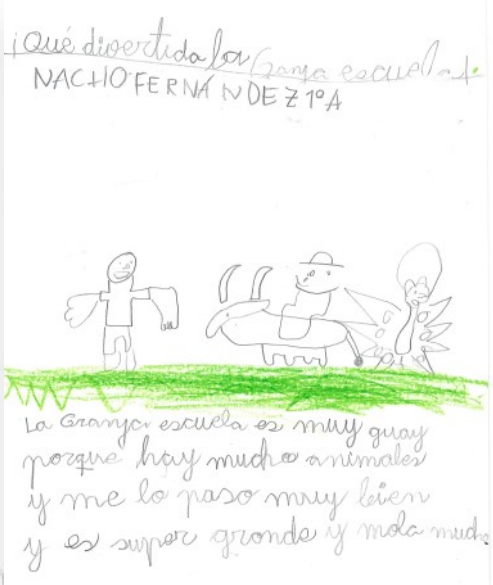 ¡Qué divertida la Granja escuela!.
NACHO FERNÁNDEZ 1ºA
La Granja escuela es muy guay
porque hay mucho animales
y me lo paso muy bien
y es super grande y mola mucho